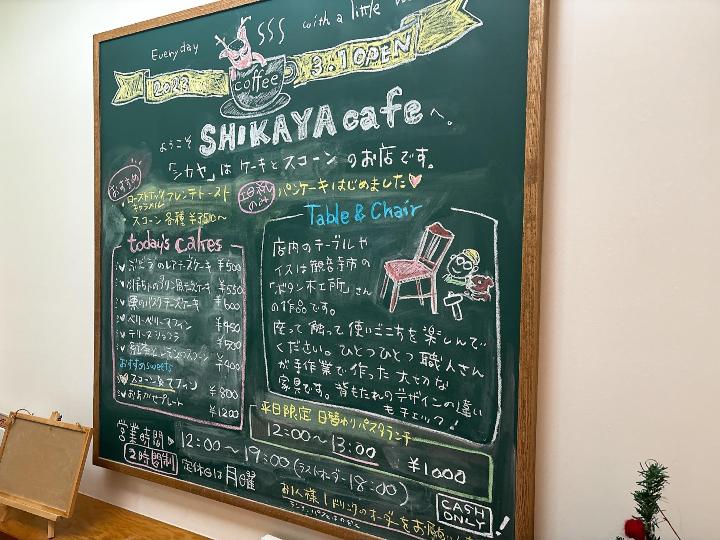 Everyday
with a little
2023
coffee
3.1 OPEN
ようこそ SHIKAYA cafeへ。
「シカヤ」は ケーキと スコーン のお店です。
おすすめ
ローストナッツ フレンチトースト
キャラメル
スコーン 各種 ¥350〜
のみ
パンケーキはじめました
today's cakes
ぶどうのレアチーズケーキ ¥500
¥550
栗のバスクチーズケーキ ¥600
ベリーベリーマフィン ¥450
テリーヌショコラ ¥500
紅茶とレモンのスコーン ¥400
おすすめsweets
スコーン&マフィン ¥800
おまかせプレート ¥1200
Table & Chair
店内のテーブルや
イスは観音寺市の
「ボタン木工所」さん
の作品です。
座って 触って 使いごこちを 楽しんで
ください。ひとつひとつ 職人さん
が手作業で作った
家具です。背もたれのデザインの違い
もチェック!
平日限定 日替わりパスタランチ
12:00〜13:00 ¥1000
営業時間 12:00〜19:00 (ラストオーダー18:00)
2時間制 定休日は月曜
お1人様1ドリンクのオーダーをお願い
CASH
ONLY!